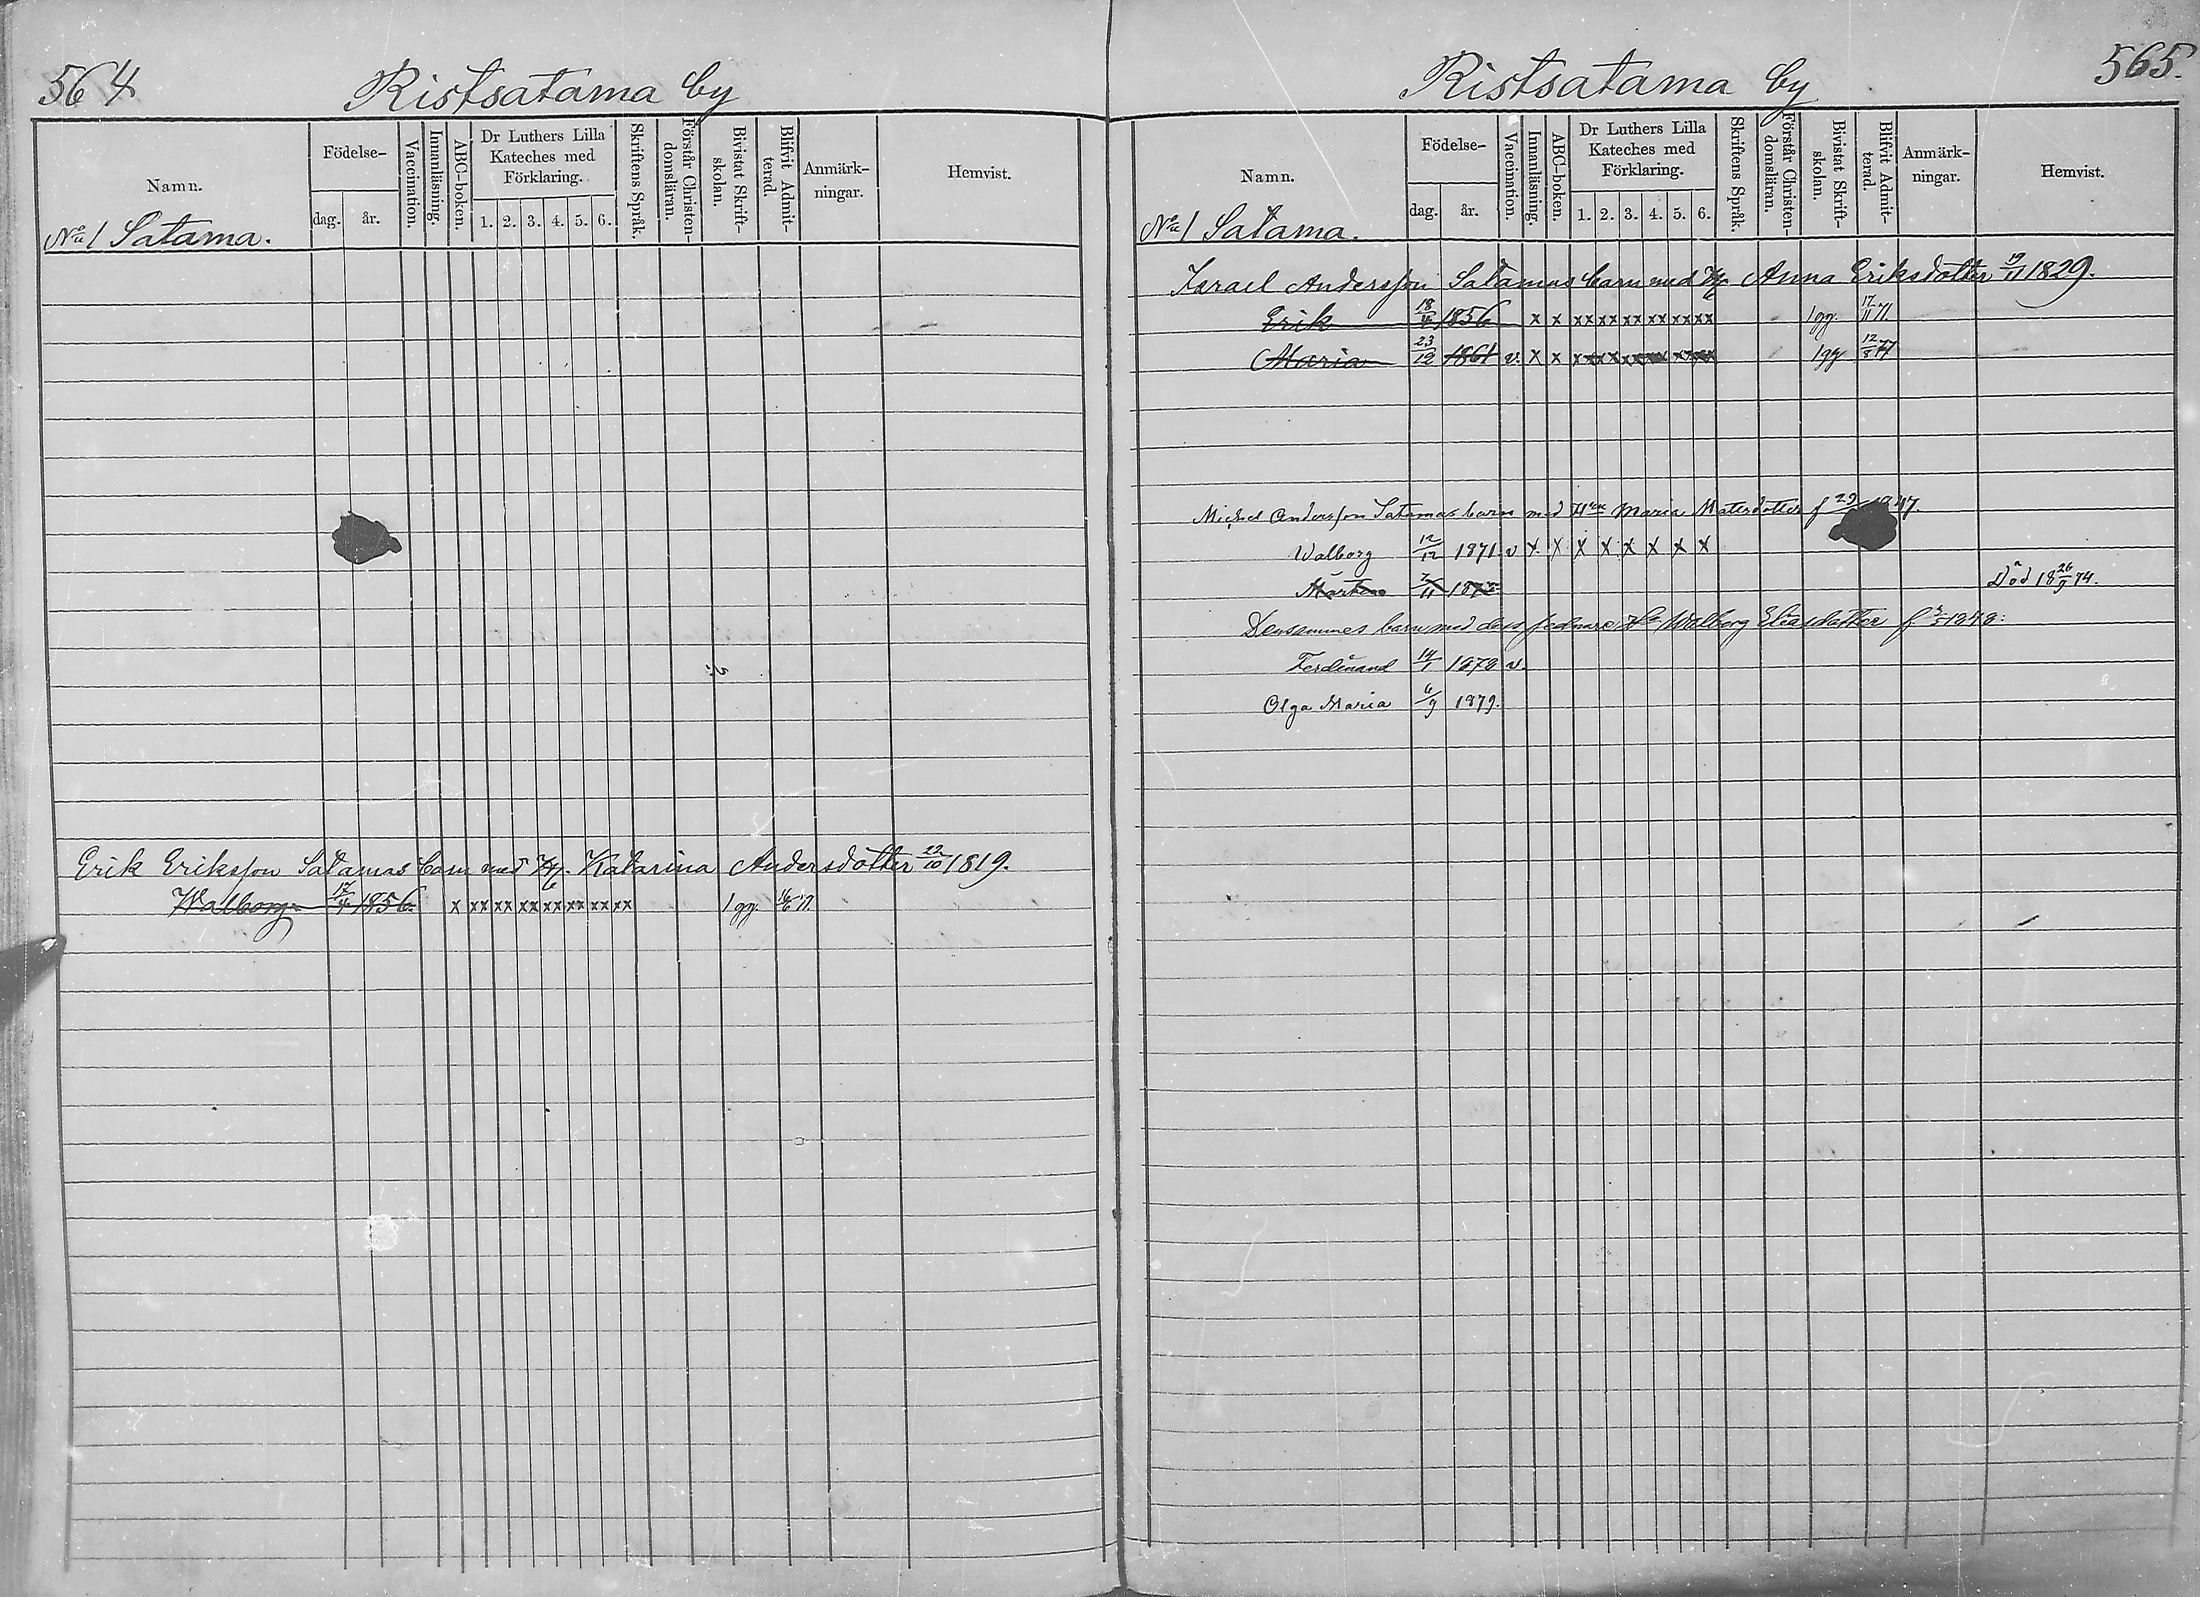 564
Ristsatama by
Namn.
Födelse-
dag.
år.
Vaccination.
Innanläsning.
ABC-boken.
Dr Luthers Lilla
Kateches med
Förklaring.
1. 2. 3. 4. 5. 6.
Skriftens Språk.
Förstår Christen-
domsläran.
Bivistat Skrift-
skolan.
Blifvit Admit-
terad.
Anmärk-
ningar.
Hemvist.
No 1 Satama.
Erik Eriksson Satamas barn med H. Katarina Andersdotter 22/10 1819.
Walborg 17/4 1856. x xx xx xx xx xx xx xx 1 gg.
565.
Ristsatama by
Namn.
Födelse-
dag.
år.
Vaccination.
Innanläsning.
ABC-boken.
Dr Luthers Lilla
Kateches med
Förklaring.
1. 2. 3. 4. 5. 6.
Skriftens Språk.
Förstår Christen-
domsläran.
Bivistat Skrift-
skolan.
Blifvit Admit-
terad.
Anmärk-
ningar.
Hemvist.
No 1 Satama.
Israel Andersson Satamas barn med H. Anna Eriksdotter 19/11 1829.
Erik 18/4 1856 x x xx xx xx xx xx xx 1 gg. 17/11 71
Maria 23/12 1861 v. x x xx xx xx xx xx xx 1 gg 12/8 77
Michel Andersson Satamas barn med Maria Matsdotter f 29
Walborg 12/12 1871 v x x x x x x x x
Mårten Död 18 26/9 74.
Densammes barn med dess sednare Walborg Eliasdotter f
Ferdinand 14/1 1878 v.
Olga Maria 6/9 1879.